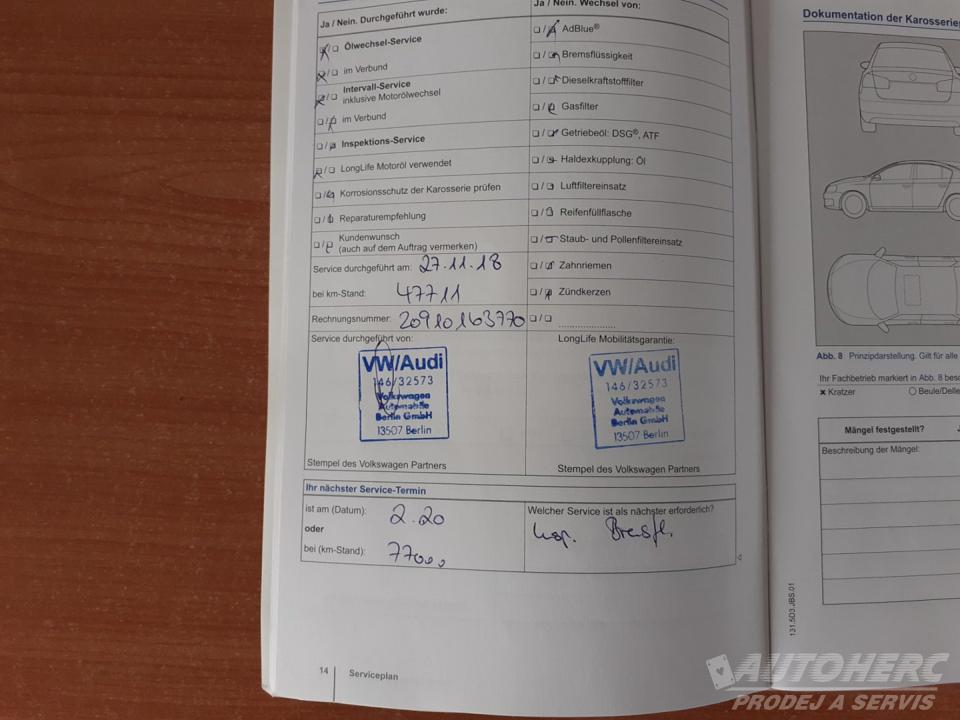 Ja / Nein. Durchgeführt wurde:
Ölwechsel-Service
im Verbund
Intervall-Service
inklusive Motorölwechsel
im Verbund
Inspektions-Service
LongLife Motoröl verwendet
Korrosionsschutz der Karosserie prüfen
Reparaturempfehlung
Kundenwunsch
(auch auf dem Auftrag vermerken)
Service durchgeführt am: 27.11.18
bei km-Stand: 47711
Rechnungsnummer: 20910163770
Service durchgeführt von:
VW/Audi
146/32573
Volkswagen
Automobile
Berlin GmbH
13507 Berlin
Stempel des Volkswagen Partners
Ja / Nein. Wechsel von:
AdBlue®
Bremsflüssigkeit
Dieselkraftstofffilter
Gasfilter
Getriebeöl: DSG®, ATF
Haldexkupplung: Öl
Luftfiltereinsatz
Reifenfüllflasche
Staub- und Pollenfiltereinsatz
Zahnriemen
Zündkerzen
LongLife Mobilitätsgarantie:
VW/Audi
146/32573
Volkswagen
Automobile
Berlin GmbH
13507 Berlin
Stempel des Volkswagen Partners
Ihr nächster Service-Termin
ist am (Datum): 2.20
oder
bei (km-Stand): 77000
Welcher Service ist als nächster erforderlich?
Insp. Bremsfl.
14 Serviceplan
Dokumentation der Karosserie
Abb. 8 Prinzipdarstellung. Gilt für alle
Ihr Fachbetrieb markiert in Abb. 8
Kratzer
Beule/Delle
Mängel festgestellt?
Beschreibung der Mängel:
131.5D3.JBS.01
AUTOHERC
PRODEJ A SERVIS